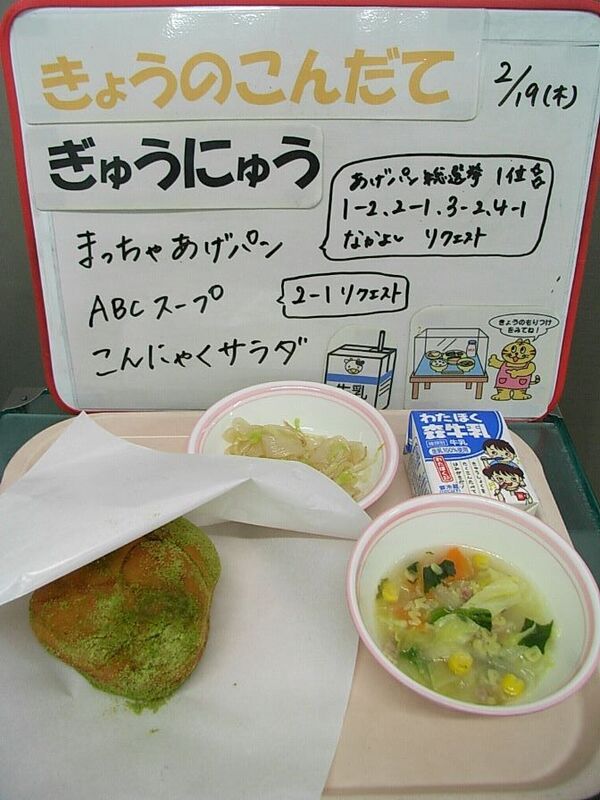 きょうのこんだて
2/19(木)
ぎゅうにゅう
あげパン総選挙 1位
1-2、2-1、3-2、4-1
なかよし リクエスト
まっちゃあげパン
ABCスープ
2-1リクエスト
こんにゃくサラダ
牛乳
きょうのもりつけ
をみてね!
わたぼく
牛乳
種類別 牛乳
生乳100%使用